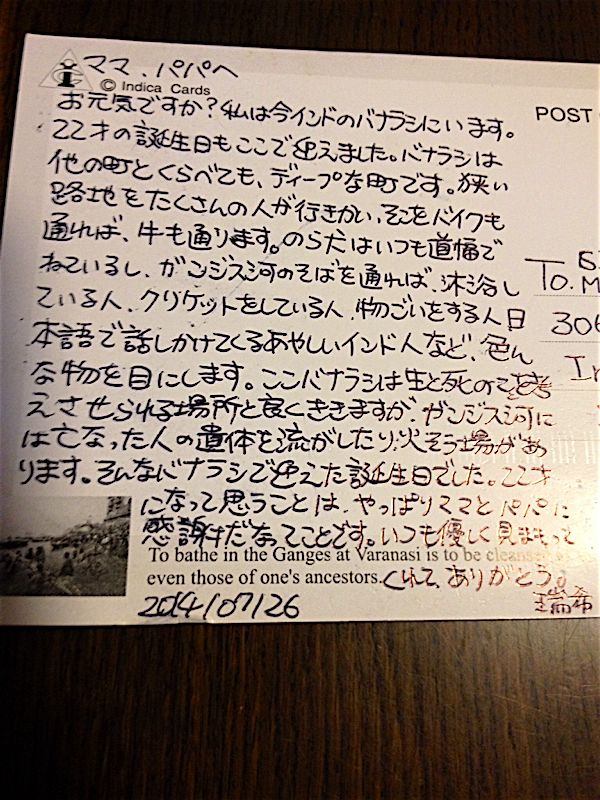 ママ、パパへ
© Indica Cards
お元気ですか?私は今インドのバナラシにいます。
POST
22才の誕生日もここで迎えました。バナラシは
他の町とくらべても、ディープな町です。狭い
路地をたくさんの人が行きかい、そこをバイクも
通れば、牛も通ります。のら犬はいつも道幅で
ねているし、ガンジス河のそばを通れば、沐浴し
To. M
ている人、クリケットをしている人、物ごいをする人日
306
本語で話しかけてくるあやしいインド人など、色ん
な物を目にします。ここバナラシは生と死の考
えさせられる場所と良くききますが、ガンジス河に
は亡なった人の遺体を流がしたり、火そう場があ
ります。そんなバナラシで迎えた誕生日でした。22才
になって思うことは、やっぱりママとパパに
感謝だなってことです。いつも優しく見まもって
To bathe in the Ganges at Varanasi is to be cleansed
even those of one's ancestors.
くれて、ありがとう。
2014/07/26
瑞希